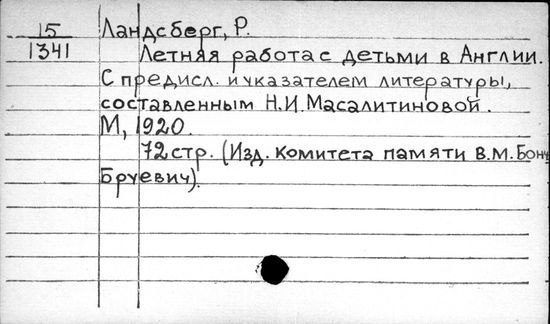 15 Ландсберг, Р.
1341 Летняя работа с детьми в Англии.
С предисл. и указателем литературы,
составленным Н.И. Масалитиновой.
М., 1920.
72 стр. (Изд. Комитета памяти В.М. Бонч
Бруевич).